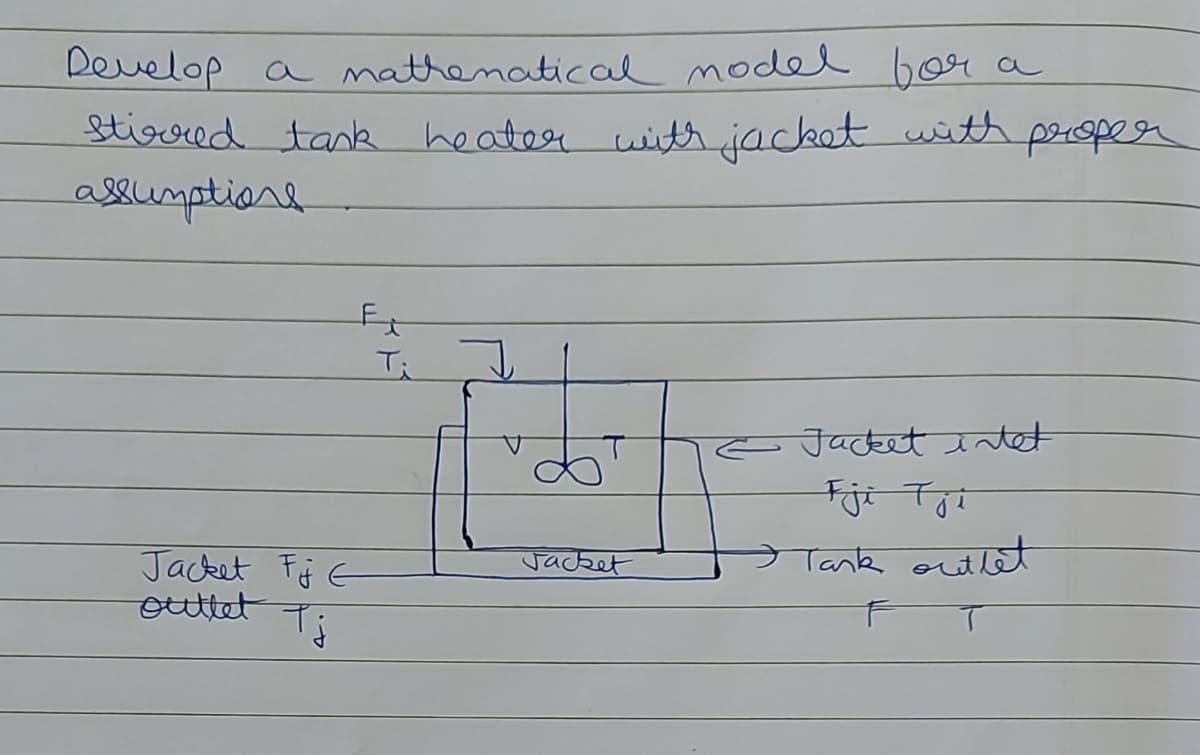 Develop a mathematical model for a
stirred tank heater with jacket with proper
assumptions.
Fi
Ti
V T
← Jacket inlet
Fji Tji
Jacket
→ Tank outlet
F T
Jacket Fj ←
outlet Tj